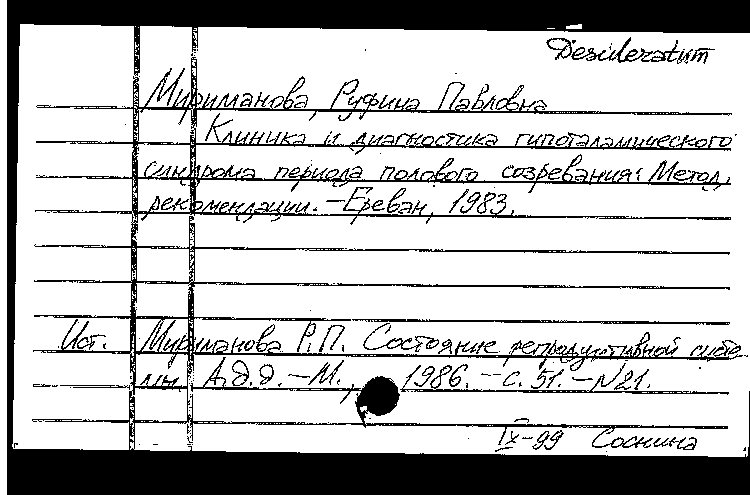 Desideratum
Мириманова, Руфина Павловна
Клиника и диагностика гипоталамического
синдрома периода полового созревания: Метод.
рекомендации. – Ереван, 1983.
Ист. Мириманова Р.П. Состояние репродуктивной систе
мы. А.д.д. – М., 1986. – с. 51. – N21.
IX-99 Соснина